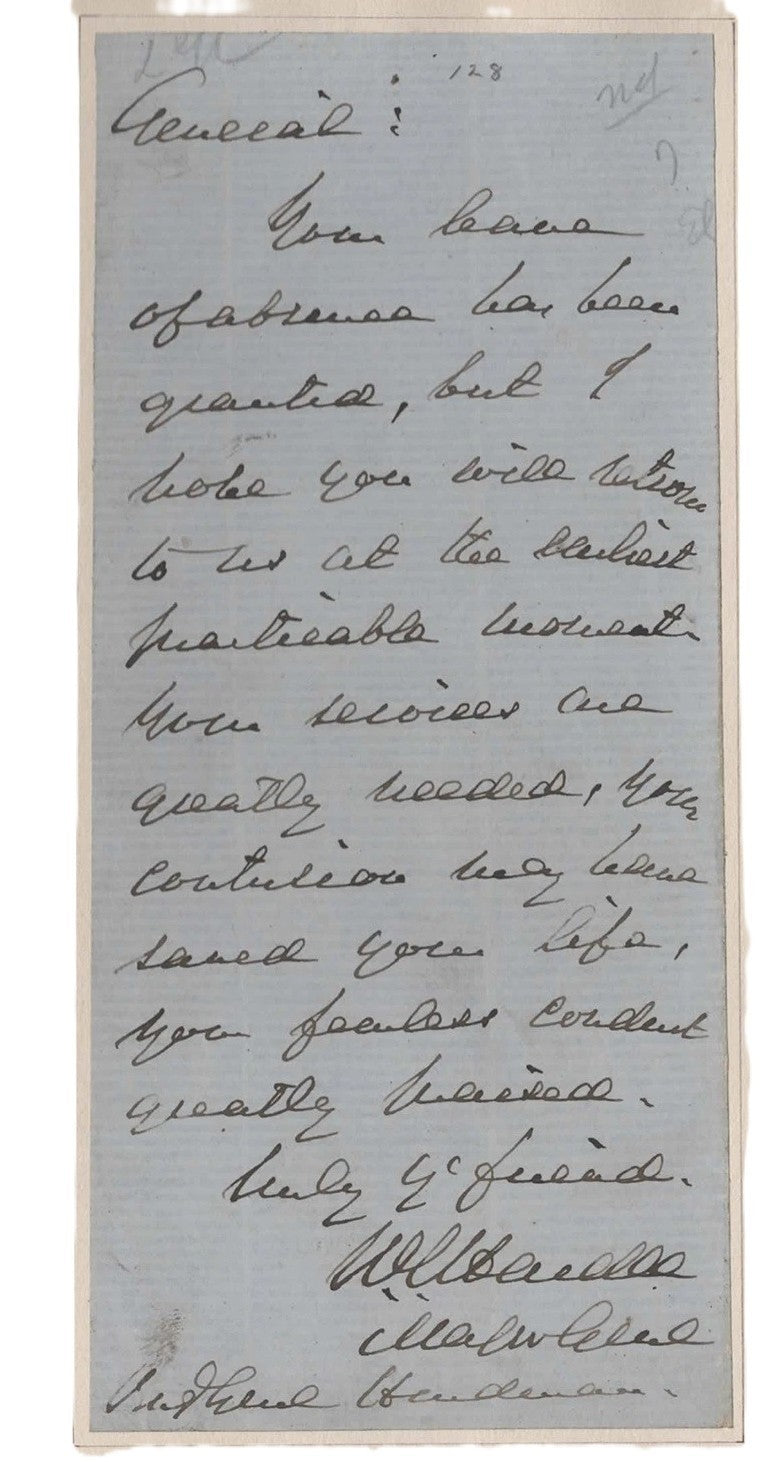 128
General :
Your leave
of absence has been
granted, but I
hope you will return
to us at the earliest
practicable moment.
Your services are
greatly needed, your
contusion may have
saved your life,
your fearless conduct
greatly praised.
Truly yr friend.
W J Hardee
Major Genl
Brig Genl Hindman.